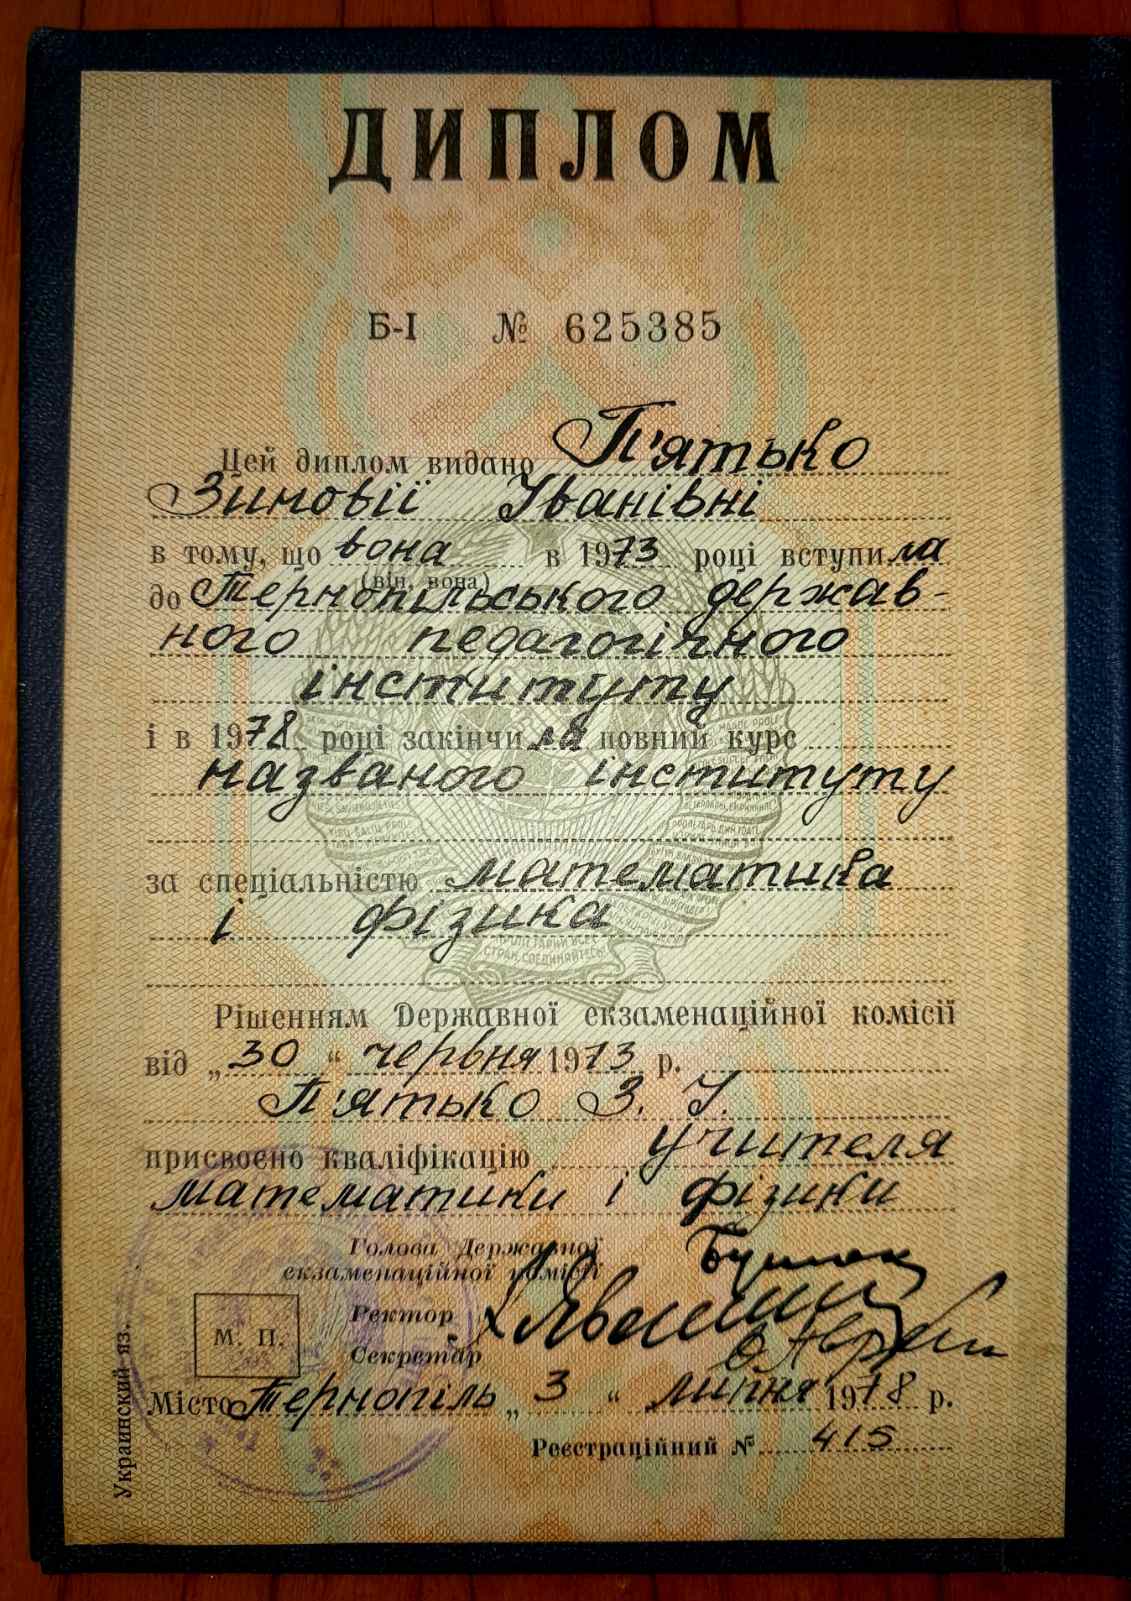 ДИПЛОМ
Б-І № 625385
Цей диплом видано П'ятько
Зиновії Іванівні
в тому, що вона в 1973 році вступила
(він, вона)
до Тернопільського держав-
ного педагогічного
інституту
і в 1978 році закінчила повний курс
названого інституту
за спеціальністю математика
і фізика
СТРАН, СОЕДИНЯЙТЕСЬ!
Рішенням Державної екзаменаційної комісії
від „30“ червня 1973 р.
П'ятько З. І.
присвоєно кваліфікацію учителя
математики і фізики
Голова Державної
екзаменаційної комісії
Ректор
Секретар
М. П.
Місто Тернопіль „3“ липня 1978 р.
Реєстраційний № 415
Украинский яз.